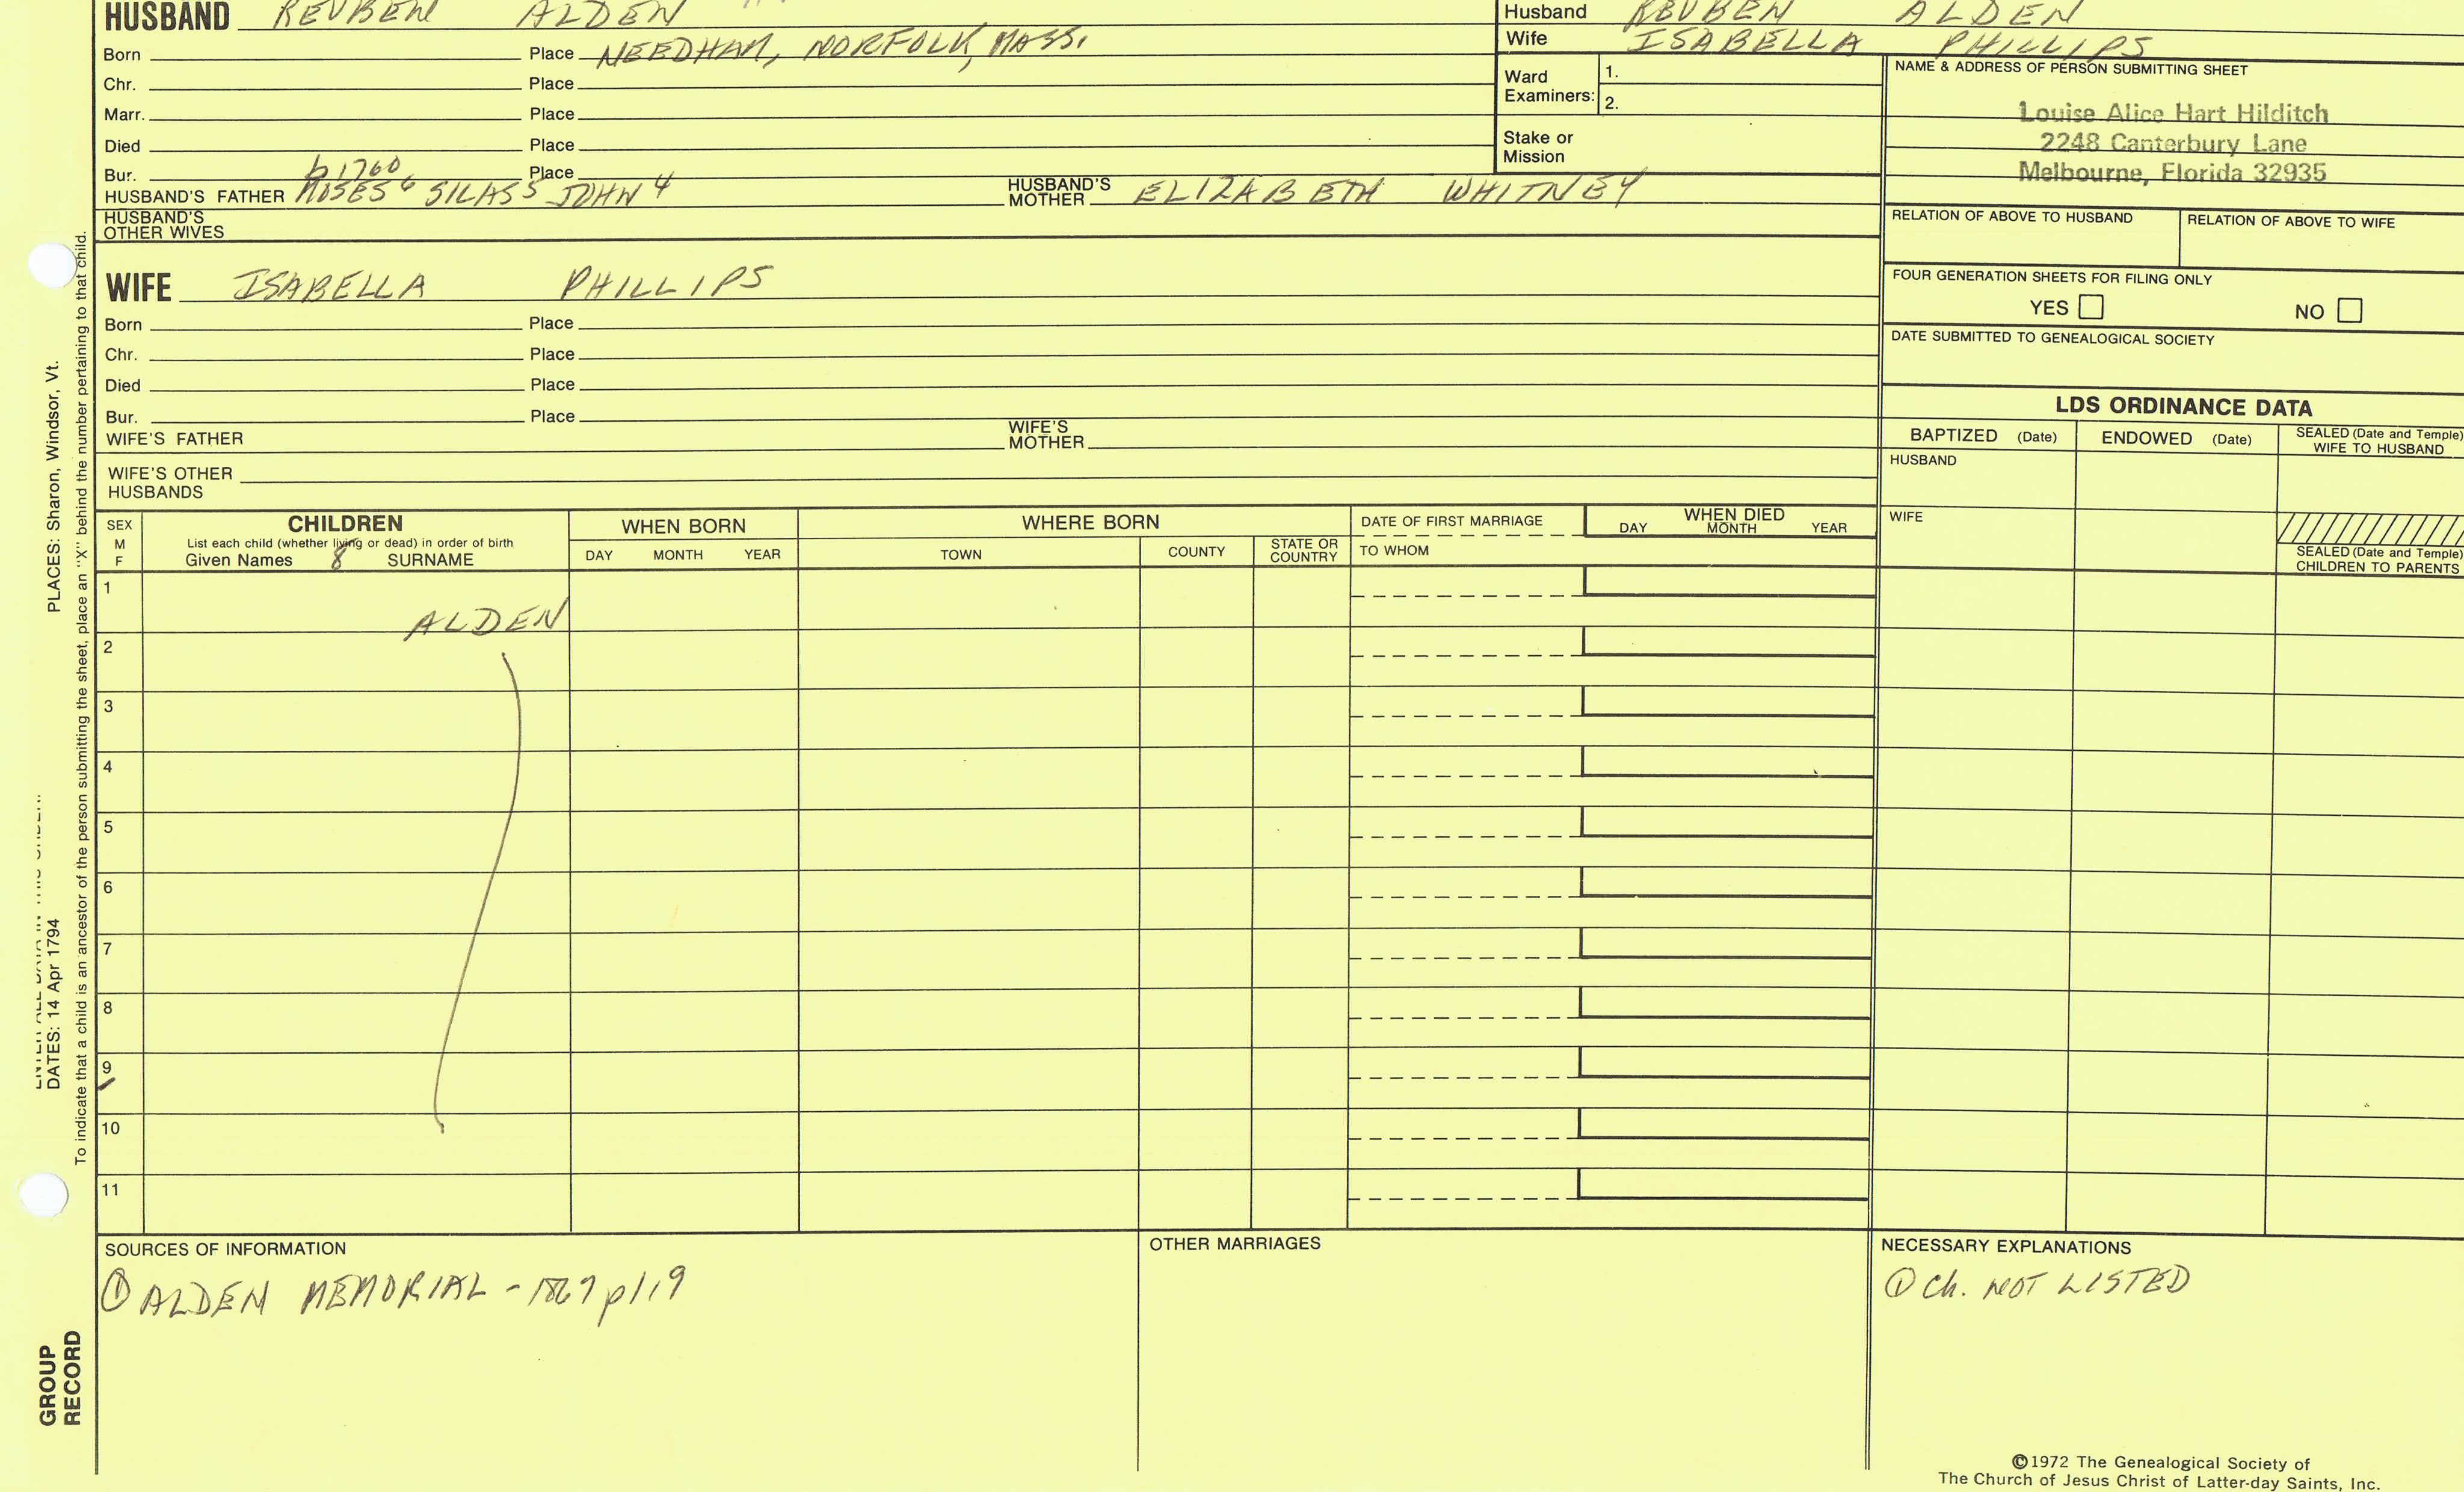 HUSBAND REUBEN ALDEN
Born Place NEEDHAM, NORFOLK, MASS.
Chr. Place
Marr. Place
Died Place
Bur. b 1760 Place
HUSBAND'S FATHER MOSES 6 SILAS 5 JOHN 4 HUSBAND'S MOTHER ELIZABETH WHITNEY
HUSBAND'S OTHER WIVES
Husband REUBEN ALDEN
Wife ISABELLA PHILLIPS
Ward Examiners: 1.
2.
Stake or Mission
NAME & ADDRESS OF PERSON SUBMITTING SHEET
Louise Alice Hart Hilditch
2248 Canterbury Lane
Melbourne, Florida 32935
RELATION OF ABOVE TO HUSBAND RELATION OF ABOVE TO WIFE
FOUR GENERATION SHEETS FOR FILING ONLY
YES NO
DATE SUBMITTED TO GENEALOGICAL SOCIETY
WIFE ISABELLA PHILLIPS
Born Place
Chr. Place
Died Place
Bur. Place
WIFE'S FATHER WIFE'S MOTHER
WIFE'S OTHER HUSBANDS
LDS ORDINANCE DATA
BAPTIZED (Date) ENDOWED (Date) SEALED (Date and Temple) WIFE TO HUSBAND
HUSBAND
WIFE
SEALED (Date and Temple) CHILDREN TO PARENTS
SEX M F
CHILDREN
List each child (whether living or dead) in order of birth
Given Names 8 SURNAME
WHEN BORN
DAY MONTH YEAR
WHERE BORN
TOWN COUNTY STATE OR COUNTRY
DATE OF FIRST MARRIAGE
TO WHOM
WHEN DIED
DAY MONTH YEAR
1 ALDEN
2
3
4
5
6
7
8
9
10
11
SOURCES OF INFORMATION
① ALDEN MEMORIAL - 1867 p 119
OTHER MARRIAGES
NECESSARY EXPLANATIONS
① Ch. NOT LISTED
©1972 The Genealogical Society of
The Church of Jesus Christ of Latter-day Saints, Inc.
PLACES: Sharon, Windsor, Vt.
DATES: 14 Apr 1794
To indicate that a child is an ancestor of the person submitting the sheet, place an "X" behind the number pertaining to that child.
GROUP
RECORD